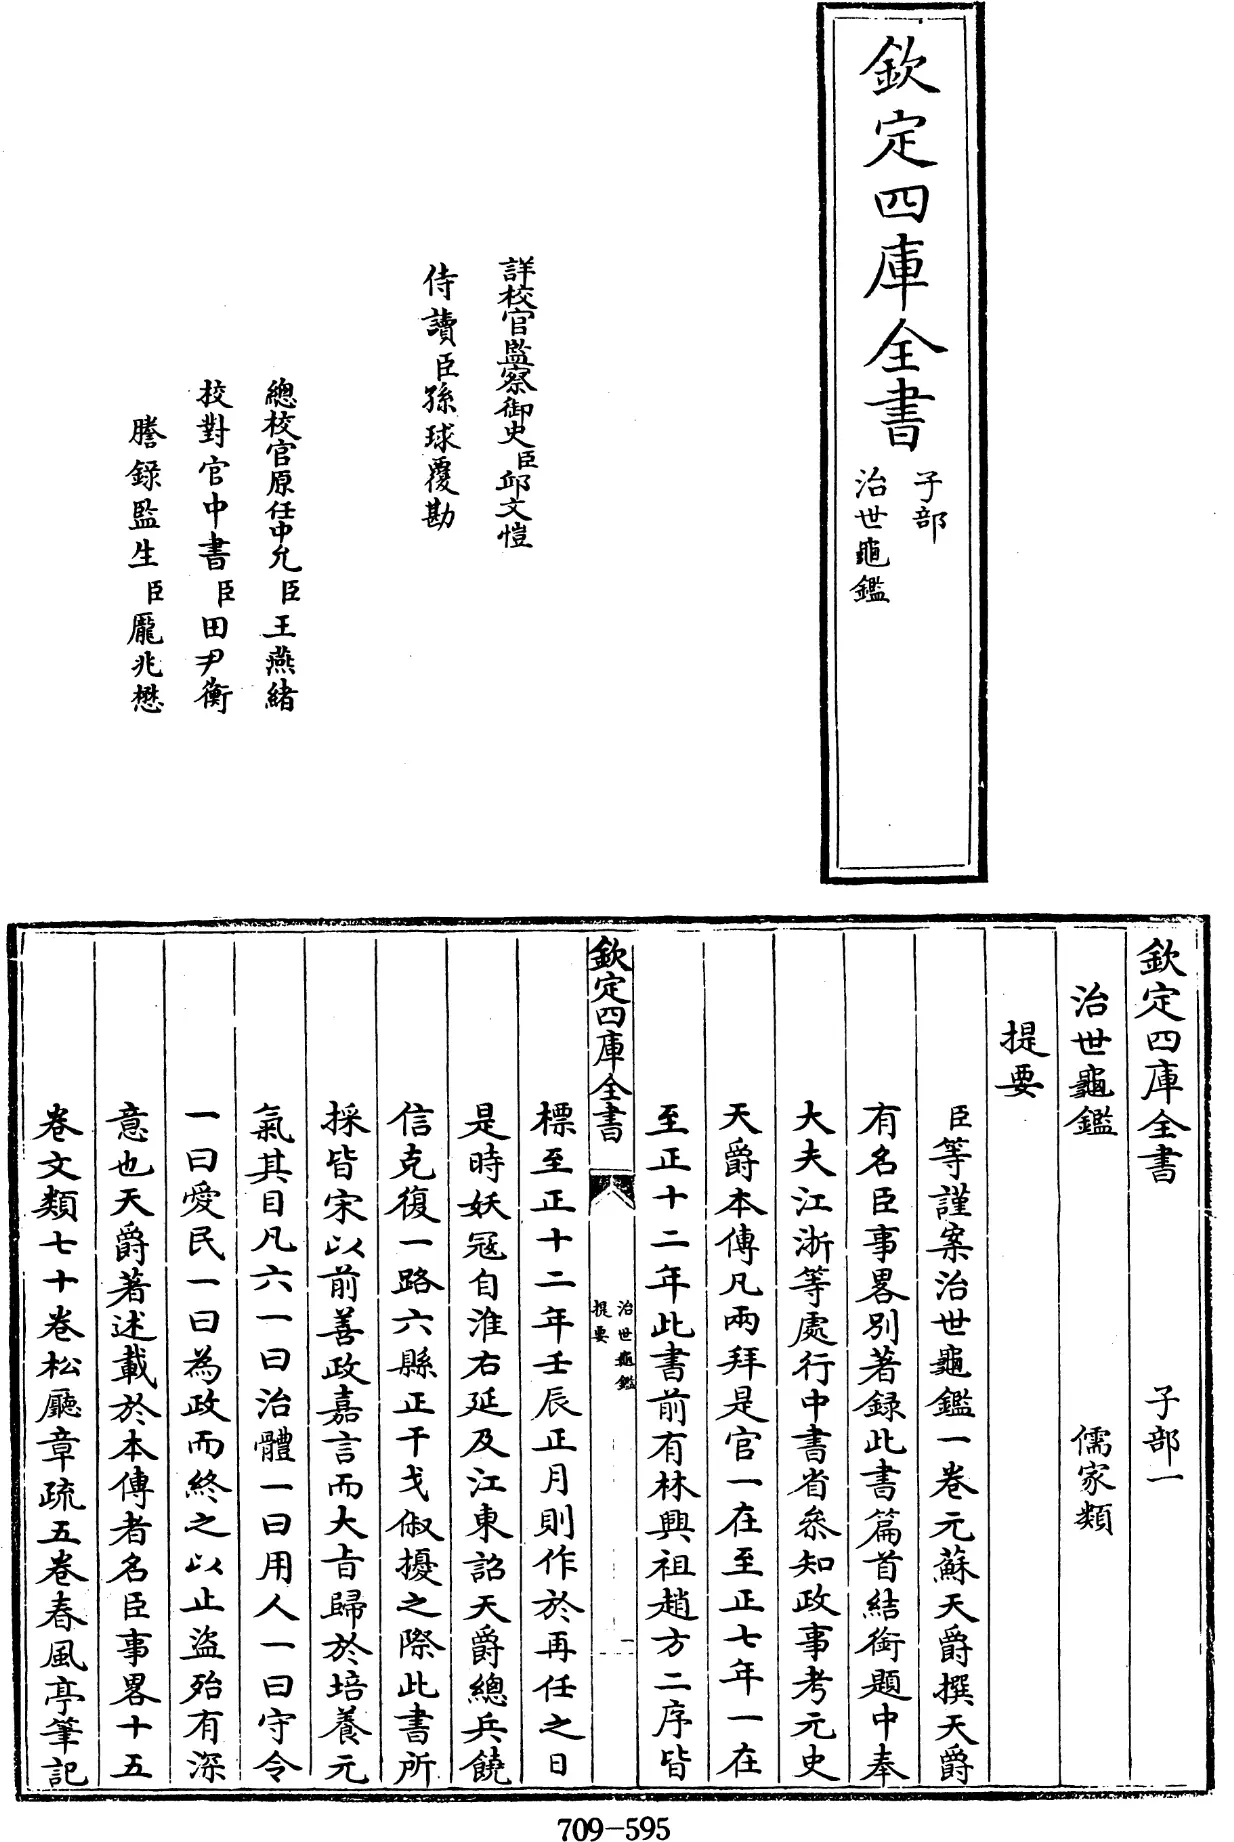 欽定四庫全書
子部
治世龜鑑
詳校官監察御史臣邱文愷
侍讀臣孫球覆勘
總校官原任中允臣王燕緒
校對官中書臣田尹衡
謄錄監生臣龎兆懋
欽定四庫全書 子部一
治世龜鑑 儒家類
提要
臣等謹案治世龜鑑一卷元蘇天爵撰天爵
有名臣事畧別著録此書篇首結銜題中奉
大夫江浙等處行中書省叅知政事考元史
天爵本傳凡兩拜是官一在至正七年一在
至正十二年此書前有林興祖趙方二序皆
欽定四庫全書
治世龜鑑
提要
一
標至正十二年壬辰正月則作於再任之日
是時妖冦自淮右延及江東詔天爵總兵饒
信克復一路六縣正干戈俶擾之際此書所
採皆宋以前善政嘉言而大旨歸於培養元
氣其目凡六一曰治體一曰用人一曰守令
一曰愛民一曰為政而終之以止盜殆有深
意也天爵著述載於本傳者名臣事畧十五
卷文類七十卷松廳章疏五卷春風亭筆記
709-595